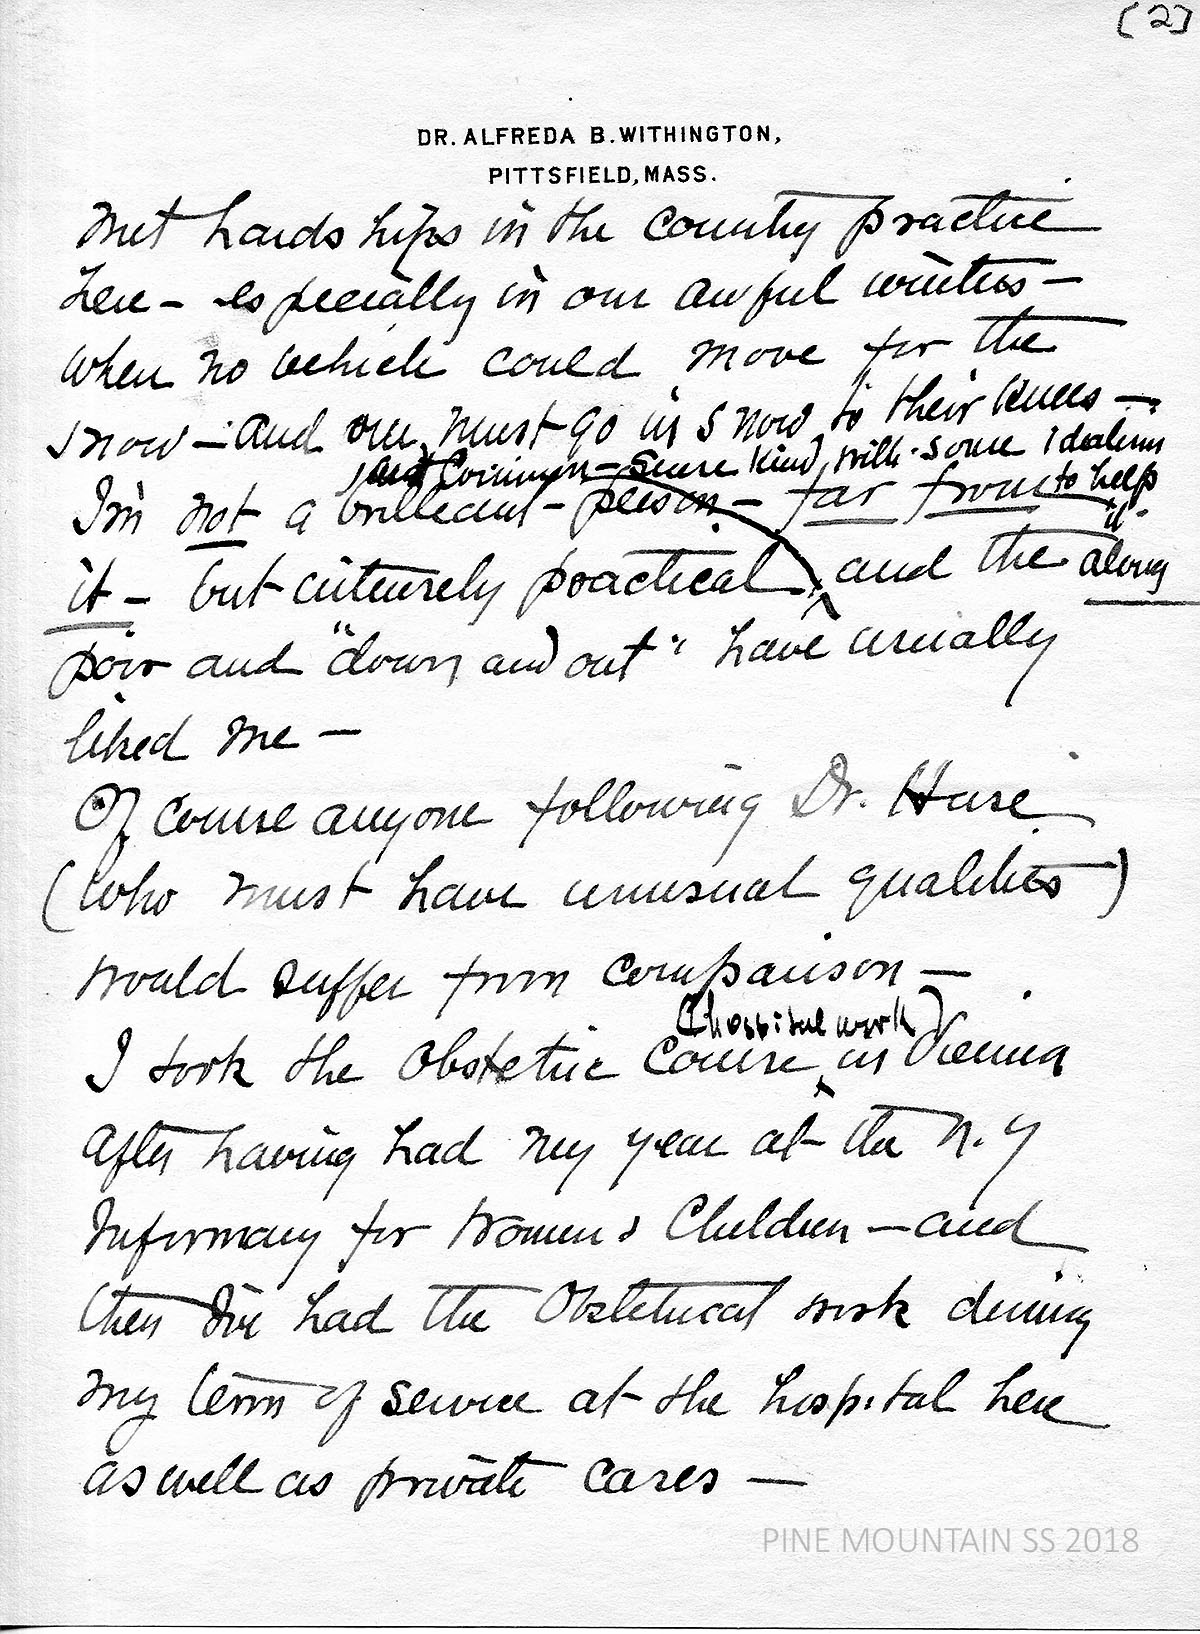 [2]
DR. ALFREDA B. WITHINGTON,
PITTSFIELD, MASS.
met hardships in the country practice
here – especially in our awful winters –
when no vehicle could move for the
snow – and one must go in snow to their knees –
and common-sense kind, with some idealism
to help
I'm not a brilliant – person – far from
it
it – but intensely practical, and the
along
poor and "down and out" have usually
liked me –
Of course anyone following Dr. Huse
(who must have unusual qualities)
would suffer from comparison –
(hospital work)
I took the Obstetric Course in Vienna
after having had my year at the N.Y
Infirmary for Women & Children – and
then I've had the Obstetrical work during
my term of service at the hospital here
as well as private cases –
PINE MOUNTAIN SS 2018